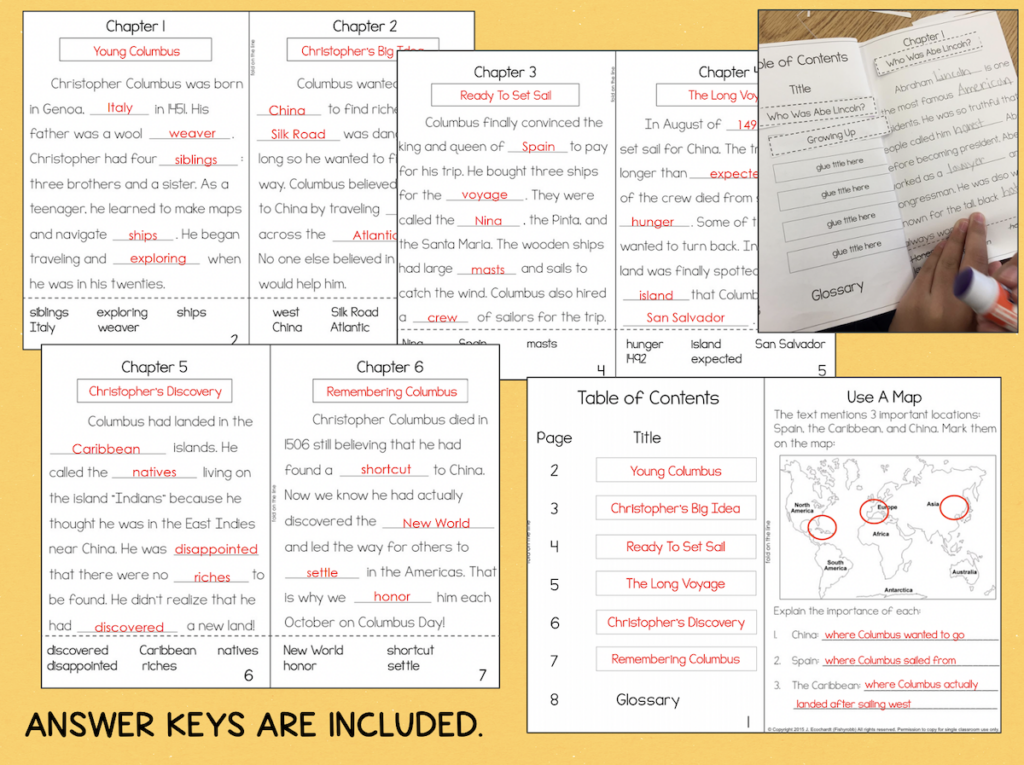 Chapter 1
Young Columbus
Christopher Columbus was born
in Genoa, Italy in 1451. His
father was a wool weaver.
Christopher had four siblings:
three brothers and a sister. As a
teenager, he learned to make maps
and navigate ships. He began
traveling and exploring when
he was in his twenties.
siblings exploring ships
Italy weaver
2
fold on the line
Chapter 2
Christopher's Big Idea
Columbus wanted
China to find riche
Silk Road was dan
long so he wanted to f
way. Columbus believed
to China by traveling
across the Atlantic
No one else believed in
would help him.
west Silk Road
China Atlantic
Chapter 3
Ready To Set Sail
Columbus finally convinced the
king and queen of Spain to pay
for his trip. He bought three ships
for the voyage. They were
called the Nina, the Pinta, and
the Santa Maria. The wooden ships
had large masts and sails to
catch the wind. Columbus also hired
a crew of sailors for the trip.
Nina Spain masts
4
fold on the line
Chapter 4
The Long Voy
In August of 149
set sail for China. The tr
longer than expecte
of the crew died from
hunger. Some of t
wanted to turn back. In
land was finally spotted
island that Columb
San Salvador.
hunger island San Salvador
1492 expected
5
ble of Contents
Title
Who Was Abe Lincoln?
Growing Up
glue title here
glue title here
glue title here
glue title here
Glossary
Chapter 1
Who Was Abe Lincoln?
Abraham Lincoln is one
the most famous American
sidents. He was so truthful that
eople called him honest Ab
efore becoming president, Abe
orked as a lawyer an
ongressman. He was also w
nown for the tall, black hat
always wor
Hon
Chapter 5
Christopher's Discovery
Columbus had landed in the
Caribbean islands. He
called the natives living on
the island "Indians" because he
thought he was in the East Indies
near China. He was disappointed
that there were no riches to
be found. He didn't realize that he
had discovered a new land!
discovered Caribbean natives
disappointed riches
6
fold on the line
Chapter 6
Remembering Columbus
Christopher Columbus died in
1506 still believing that he had
found a shortcut to China.
Now we know he had actually
discovered the New World
and led the way for others to
settle in the Americas. That
is why we honor him each
October on Columbus Day!
New World shortcut
honor settle
7
Table of Contents
Page Title
2 Young Columbus
3 Christopher's Big Idea
4 Ready To Set Sail
5 The Long Voyage
6 Christopher's Discovery
7 Remembering Columbus
8 Glossary
1
fold on the line
Use A Map
The text mentions 3 important locations:
Spain, the Caribbean, and China. Mark them
on the map:
North
America
Europe
Asia
Africa
South
America
Australia
Antarctica
Explain the importance of each:
1. China: where Columbus wanted to go
2. Spain: where Columbus sailed from
3. The Caribbean: where Columbus actually
landed after sailing west
© Copyright 2015 J. Eccchardt (Fishyrobb) All rights reserved. Permission to copy for single classroom use only.
ANSWER KEYS ARE INCLUDED.